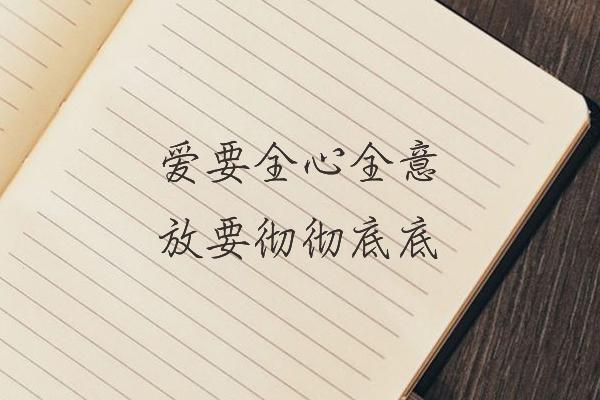 爱要全心全意
放要彻彻底底